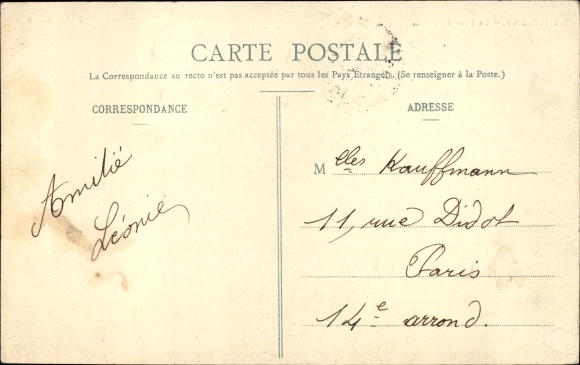 CARTE POSTALE
La Correspondance au recto n'est pas acceptée par tous les Pays Etrangers. (Se renseigner à la Poste.)
CORRESPONDANCE
ADRESSE
Amitié
Léonie
Mlles Kauffmann
11, rue Didot
Paris
14e arrond.